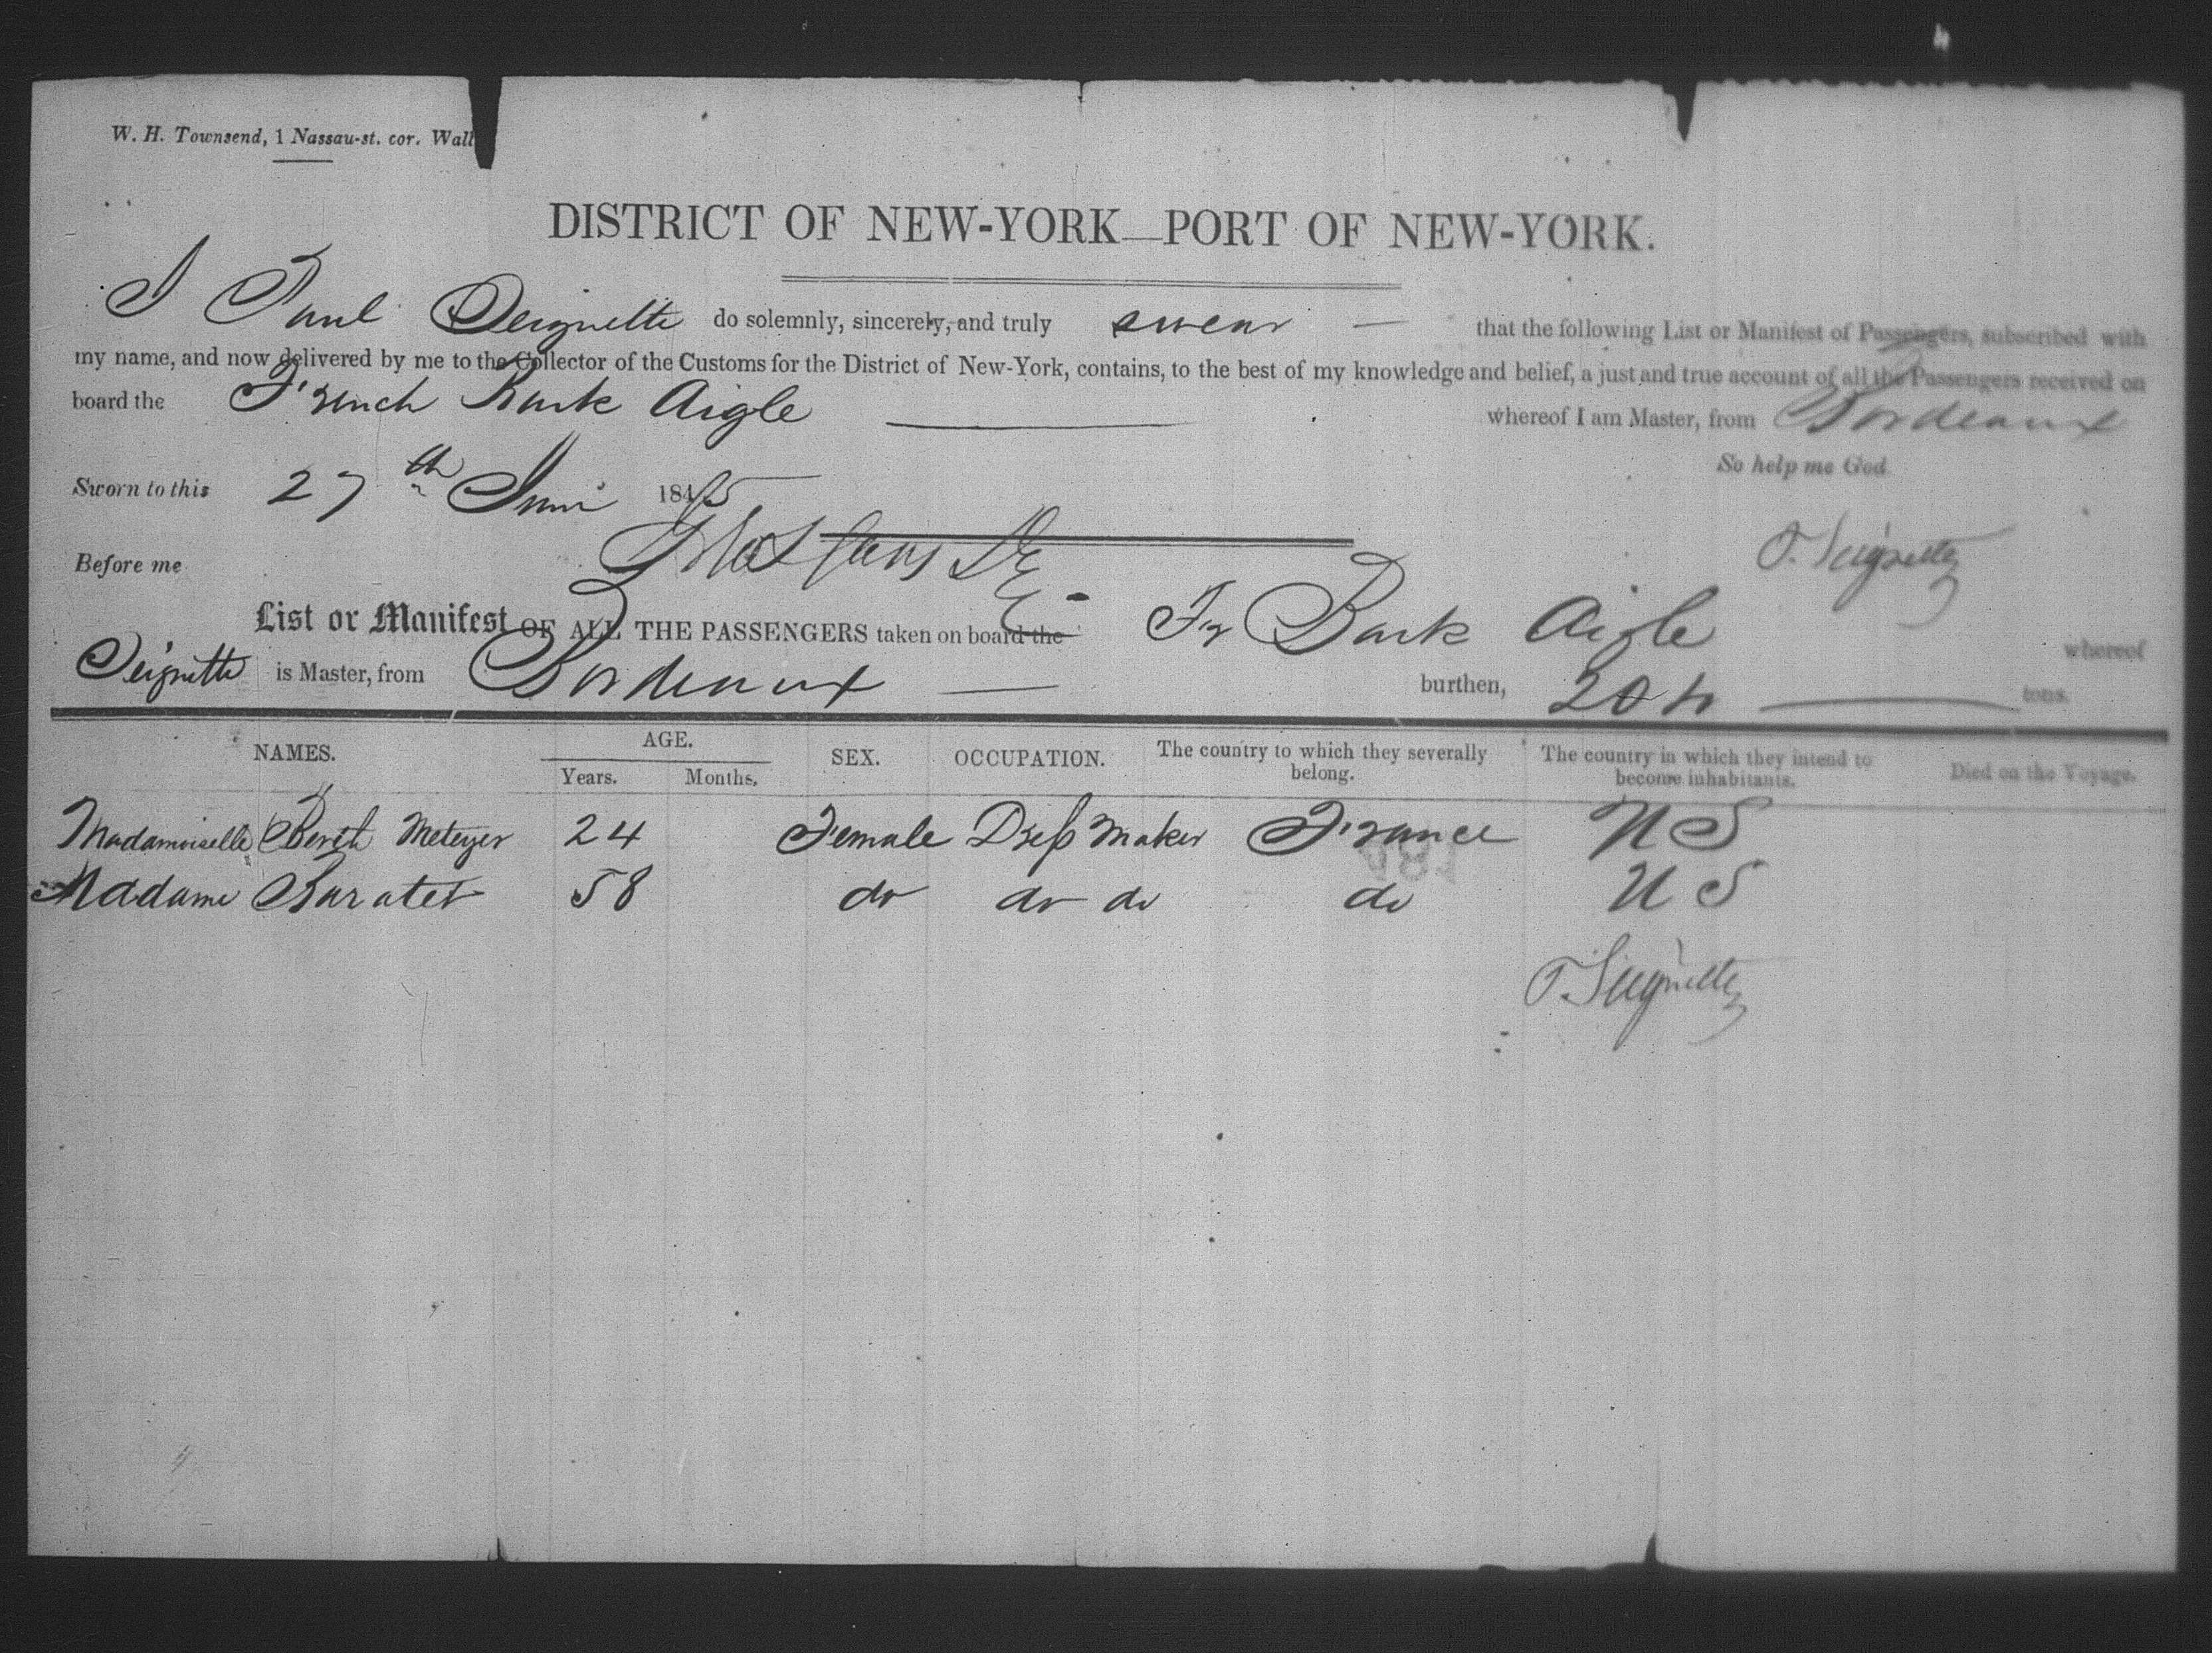 W. H. Townsend, 1 Nassau-st. cor. Wall
DISTRICT OF NEW-YORK—PORT OF NEW-YORK.
I Paul Seignette do solemnly, sincerely, and truly swear — that the following List or Manifest of Passengers, subscribed with
my name, and now delivered by me to the Collector of the Customs for the District of New-York, contains, to the best of my knowledge and belief, a just and true account of all the Passengers received on
board the French Bark Aigle whereof I am Master, from Bordeaux
So help me God.
Sworn to this 27th June 1845
P. Seignette
Before me
List or Manifest OF ALL THE PASSENGERS taken on board the Fr Bark Aigle whereof
Seignette is Master, from Bordeaux — burthen, 204 tons.
NAMES. AGE. SEX. OCCUPATION. The country to which they severally belong. The country in which they intend to become inhabitants. Died on the Voyage.
Years. Months.
Madamoiselle Berth Meteyer 24 Female Dress Maker France U S
Madame Baratet 58 do do do do U S
P. Seignette